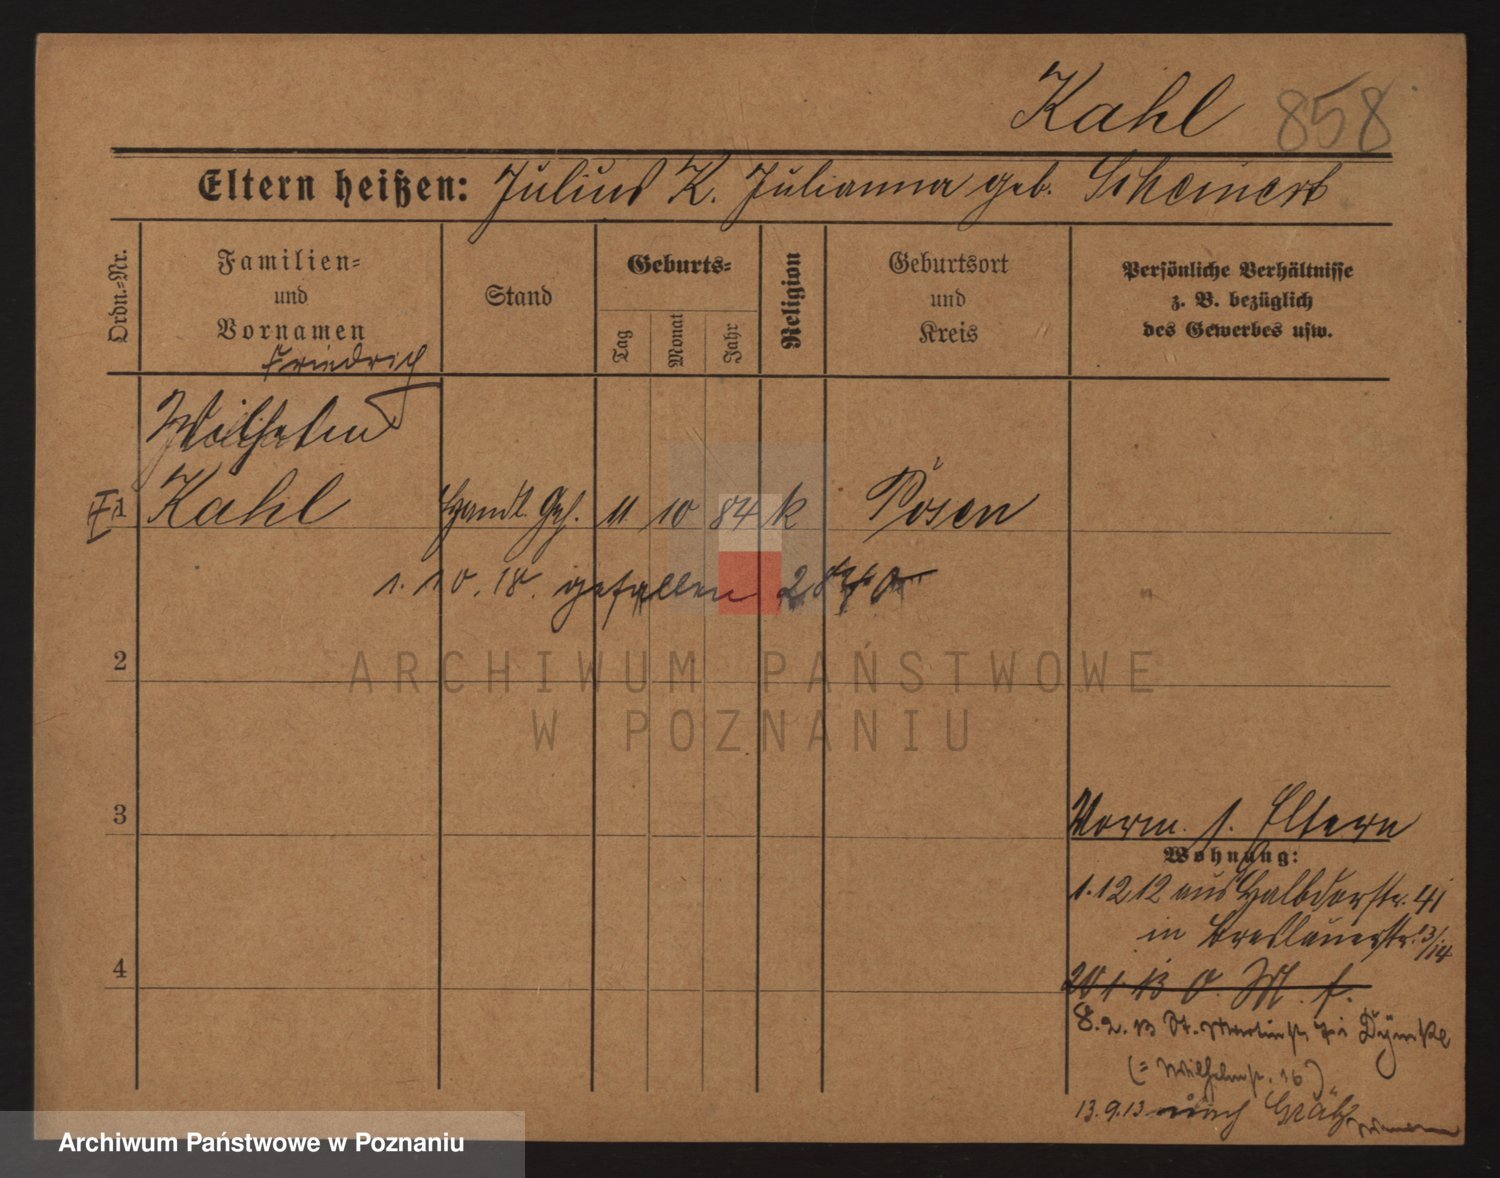 Kahl 858
Eltern heißen: Julius K. Julianna geb. Scheinert
Ordn.-Nr.
Familien-
und
Vornamen
Stand
Geburts-
Tag
Monat
Jahr
Religion
Geburtsort
und
Kreis
Persönliche Verhältnisse
z. B. bezüglich
des Gewerbes usw.
Friedrich
Wilhelm
1 Kahl Handl. Geh. 11 10 84 k Posen
1. 10. 18. gefallen
2
ARCHIWUM PAŃSTWOWE
W POZNANIU
3
Vorm. s. Eltern
Wohnung:
1. 12 12 aus Halbdorfstr. 41
in Breslauerstr. 13/14
4
20 1. 13 O. M. f.
8. 2. 13 St. Martinstr.
(= Wilhelmstr. 16)
13. 9. 13 nach Grätz
Archiwum Państwowe w Poznaniu